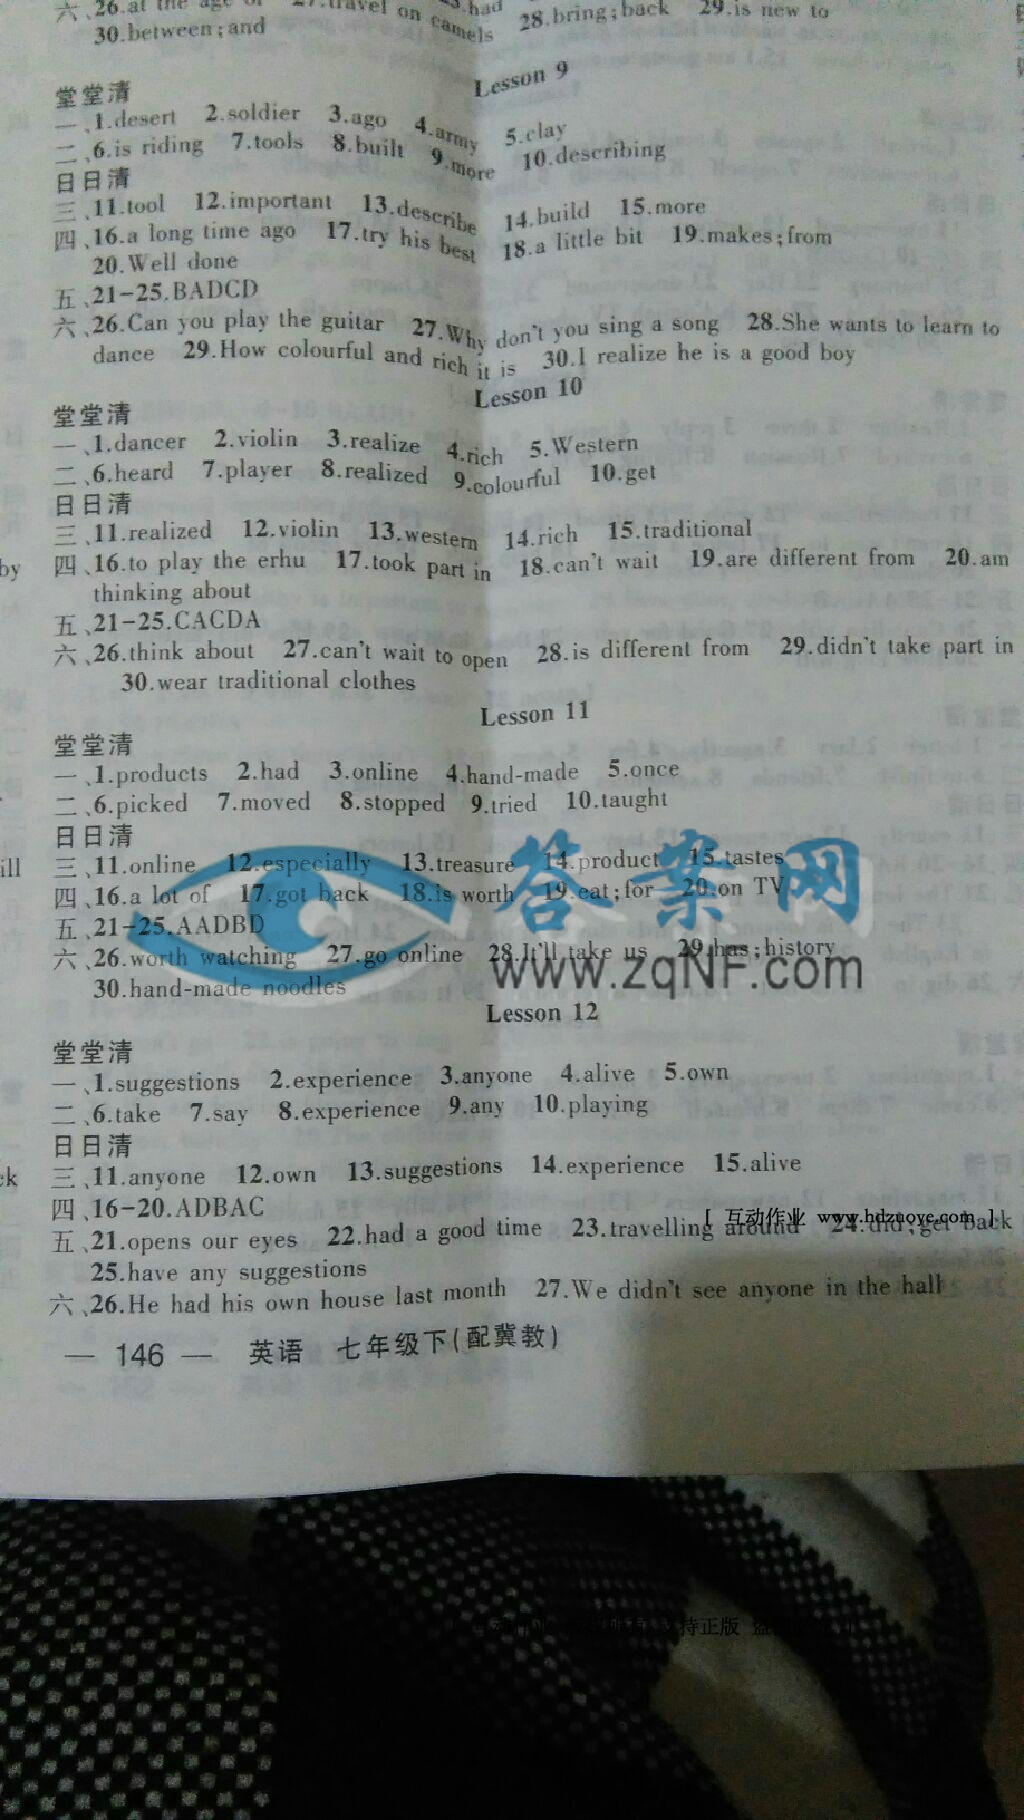 六、26.at the age of 27.travel on camels 28.bring;back 29.is new to
30.between;and
Lesson 9
堂堂清
一、1.desert 2.soldier 3.ago 4.army 5.clay
二、6.is riding 7.tools 8.built 9.more 10.describing
日日清
三、11.tool 12.important 13.describe 14.build 15.more
四、16.a long time ago 17.try his best 18.a little bit 19.makes;from
20.Well done
五、21-25.BADCD
六、26.Can you play the guitar 27.Why don't you sing a song 28.She wants to learn to
dance 29.How colourful and rich it is 30.I realize he is a good boy
Lesson 10
堂堂清
一、1.dancer 2.violin 3.realize 4.rich 5.Western
二、6.heard 7.player 8.realized 9.colourful 10.get
日日清
三、11.realized 12.violin 13.western 14.rich 15.traditional
四、16.to play the erhu 17.took part in 18.can't wait 19.are different from 20.am
thinking about
五、21-25.CACDA
六、26.think about 27.can't wait to open 28.is different from 29.didn't take part in
30.wear traditional clothes
Lesson 11
堂堂清
一、1.products 2.had 3.online 4.hand-made 5.once
二、6.picked 7.moved 8.stopped 9.tried 10.taught
日日清
三、11.online 12.especially 13.treasure 14.product 15.tastes
四、16.a lot of 17.got back 18.is worth 19.eat;for 20.on TV
五、21-25.AADBD
六、26.worth watching 27.go online 28.It'll take us 29.has;history
30.hand-made noodles
答案网
www.zqNF.com
Lesson 12
堂堂清
一、1.suggestions 2.experience 3.anyone 4.alive 5.own
二、6.take 7.say 8.experience 9.any 10.playing
日日清
三、11.anyone 12.own 13.suggestions 14.experience 15.alive
四、16-20.ADBAC
五、21.opens our eyes 22.had a good time 23.travelling around 24.did;get back
[ 互动作业 www.hdzuoye.com ]
25.have any suggestions
六、26.He had his own house last month 27.We didn't see anyone in the hall
— 146 — 英语 七年级下(配冀教)